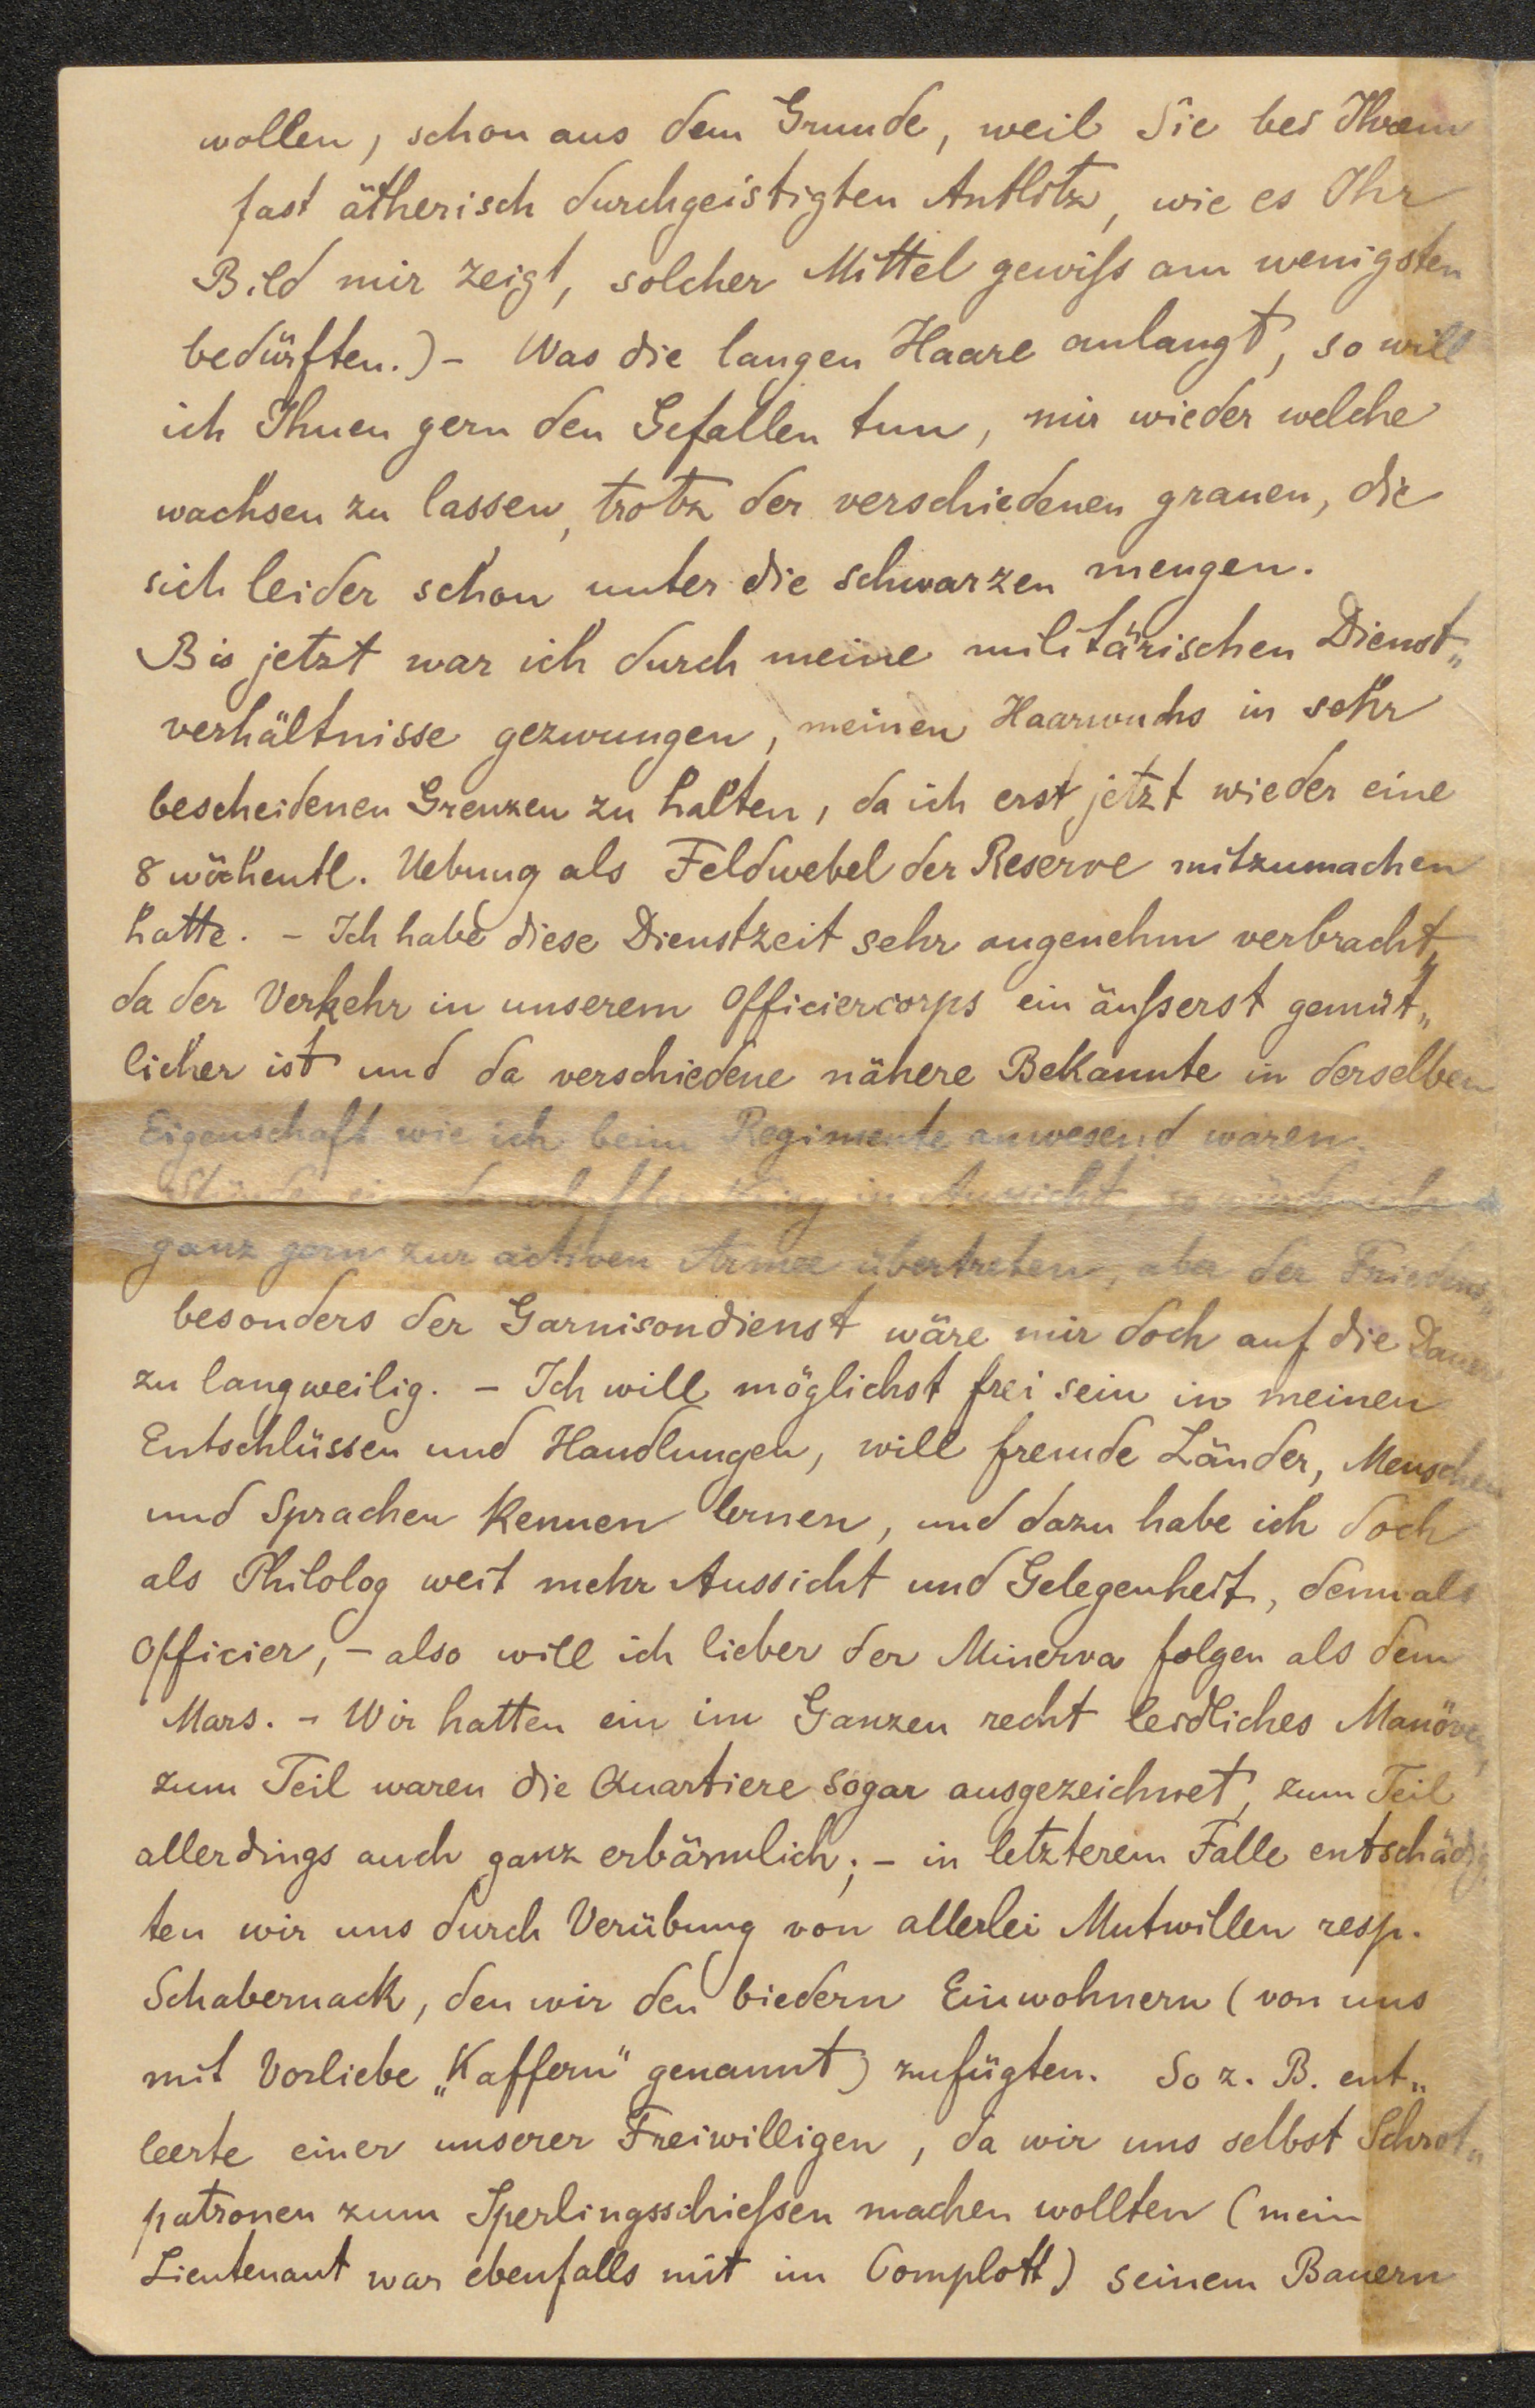 wollen, schon aus dem Grunde, weil Sie bei Ihrem
fast ätherisch durchgeistigten Antlitz, wie es Ihr
Bild mir zeigt, solcher Mittel gewiſs am wenigsten
bedürften.) - Was die langen Haare anlangt, so will
ich Ihnen gern den Gefallen tun, mir wieder welche
wachsen zu lassen, trotz der verschiedenen grauen, die
sich leider schon unter die schwarzen mengen.
Bis jetzt war ich durch meine militärischen Dienst„
verhältnisse gezwungen, meinen Haarwuchs in sehr
bescheidenen Grenzen zu halten, da ich erst jetzt wieder eine
8 wöchentl. Uebung als Feldwebel der Reserve mitzumachen
hatte. - Ich habe diese Dienstzeit sehr angenehm verbracht,
da der Verkehr in unserem Officiercorps ein äuſserst gemüt„
licher ist und da verschiedene nähere Bekannte in derselben
Eigenschaft wie ich beim Regimente anwesend waren.
in Aussicht, so würde ich
ganz gern zur activen Armee übertreten, aber der Friedens„
besonders der Garnisondienst wäre mir doch auf die Dauer
zu langweilig. - Ich will möglichst frei sein in meinen
Entschlüssen und Handlungen, will fremde Länder, Menschen
und Sprachen kennen lernen, und dazu habe ich doch
als Philolog weit mehr Aussicht und Gelegenheit, denn als
Officier, - also will ich lieber der Minerva folgen als dem
Mars. - Wir hatten ein im Ganzen recht leidliches Manöver,
zum Teil waren die Quartiere sogar ausgezeichnet, zum Teil
allerdings auch ganz erbärmlich; - in letzterem Falle entschädig
ten wir uns durch Verübung von allerlei Mutwillen resp.
Schabernack, den wir den biedern Einwohnern (von uns
mit Vorliebe „Kaffern" genannt) zufügten. So z. B. ent„
leerte einer unserer Freiwilligen, da wir uns selbst Schrot„
patronen zum Sperlingsschieſsen machen wollten (mein
Lieutenant war ebenfalls mit im Complott) seinem Bauern